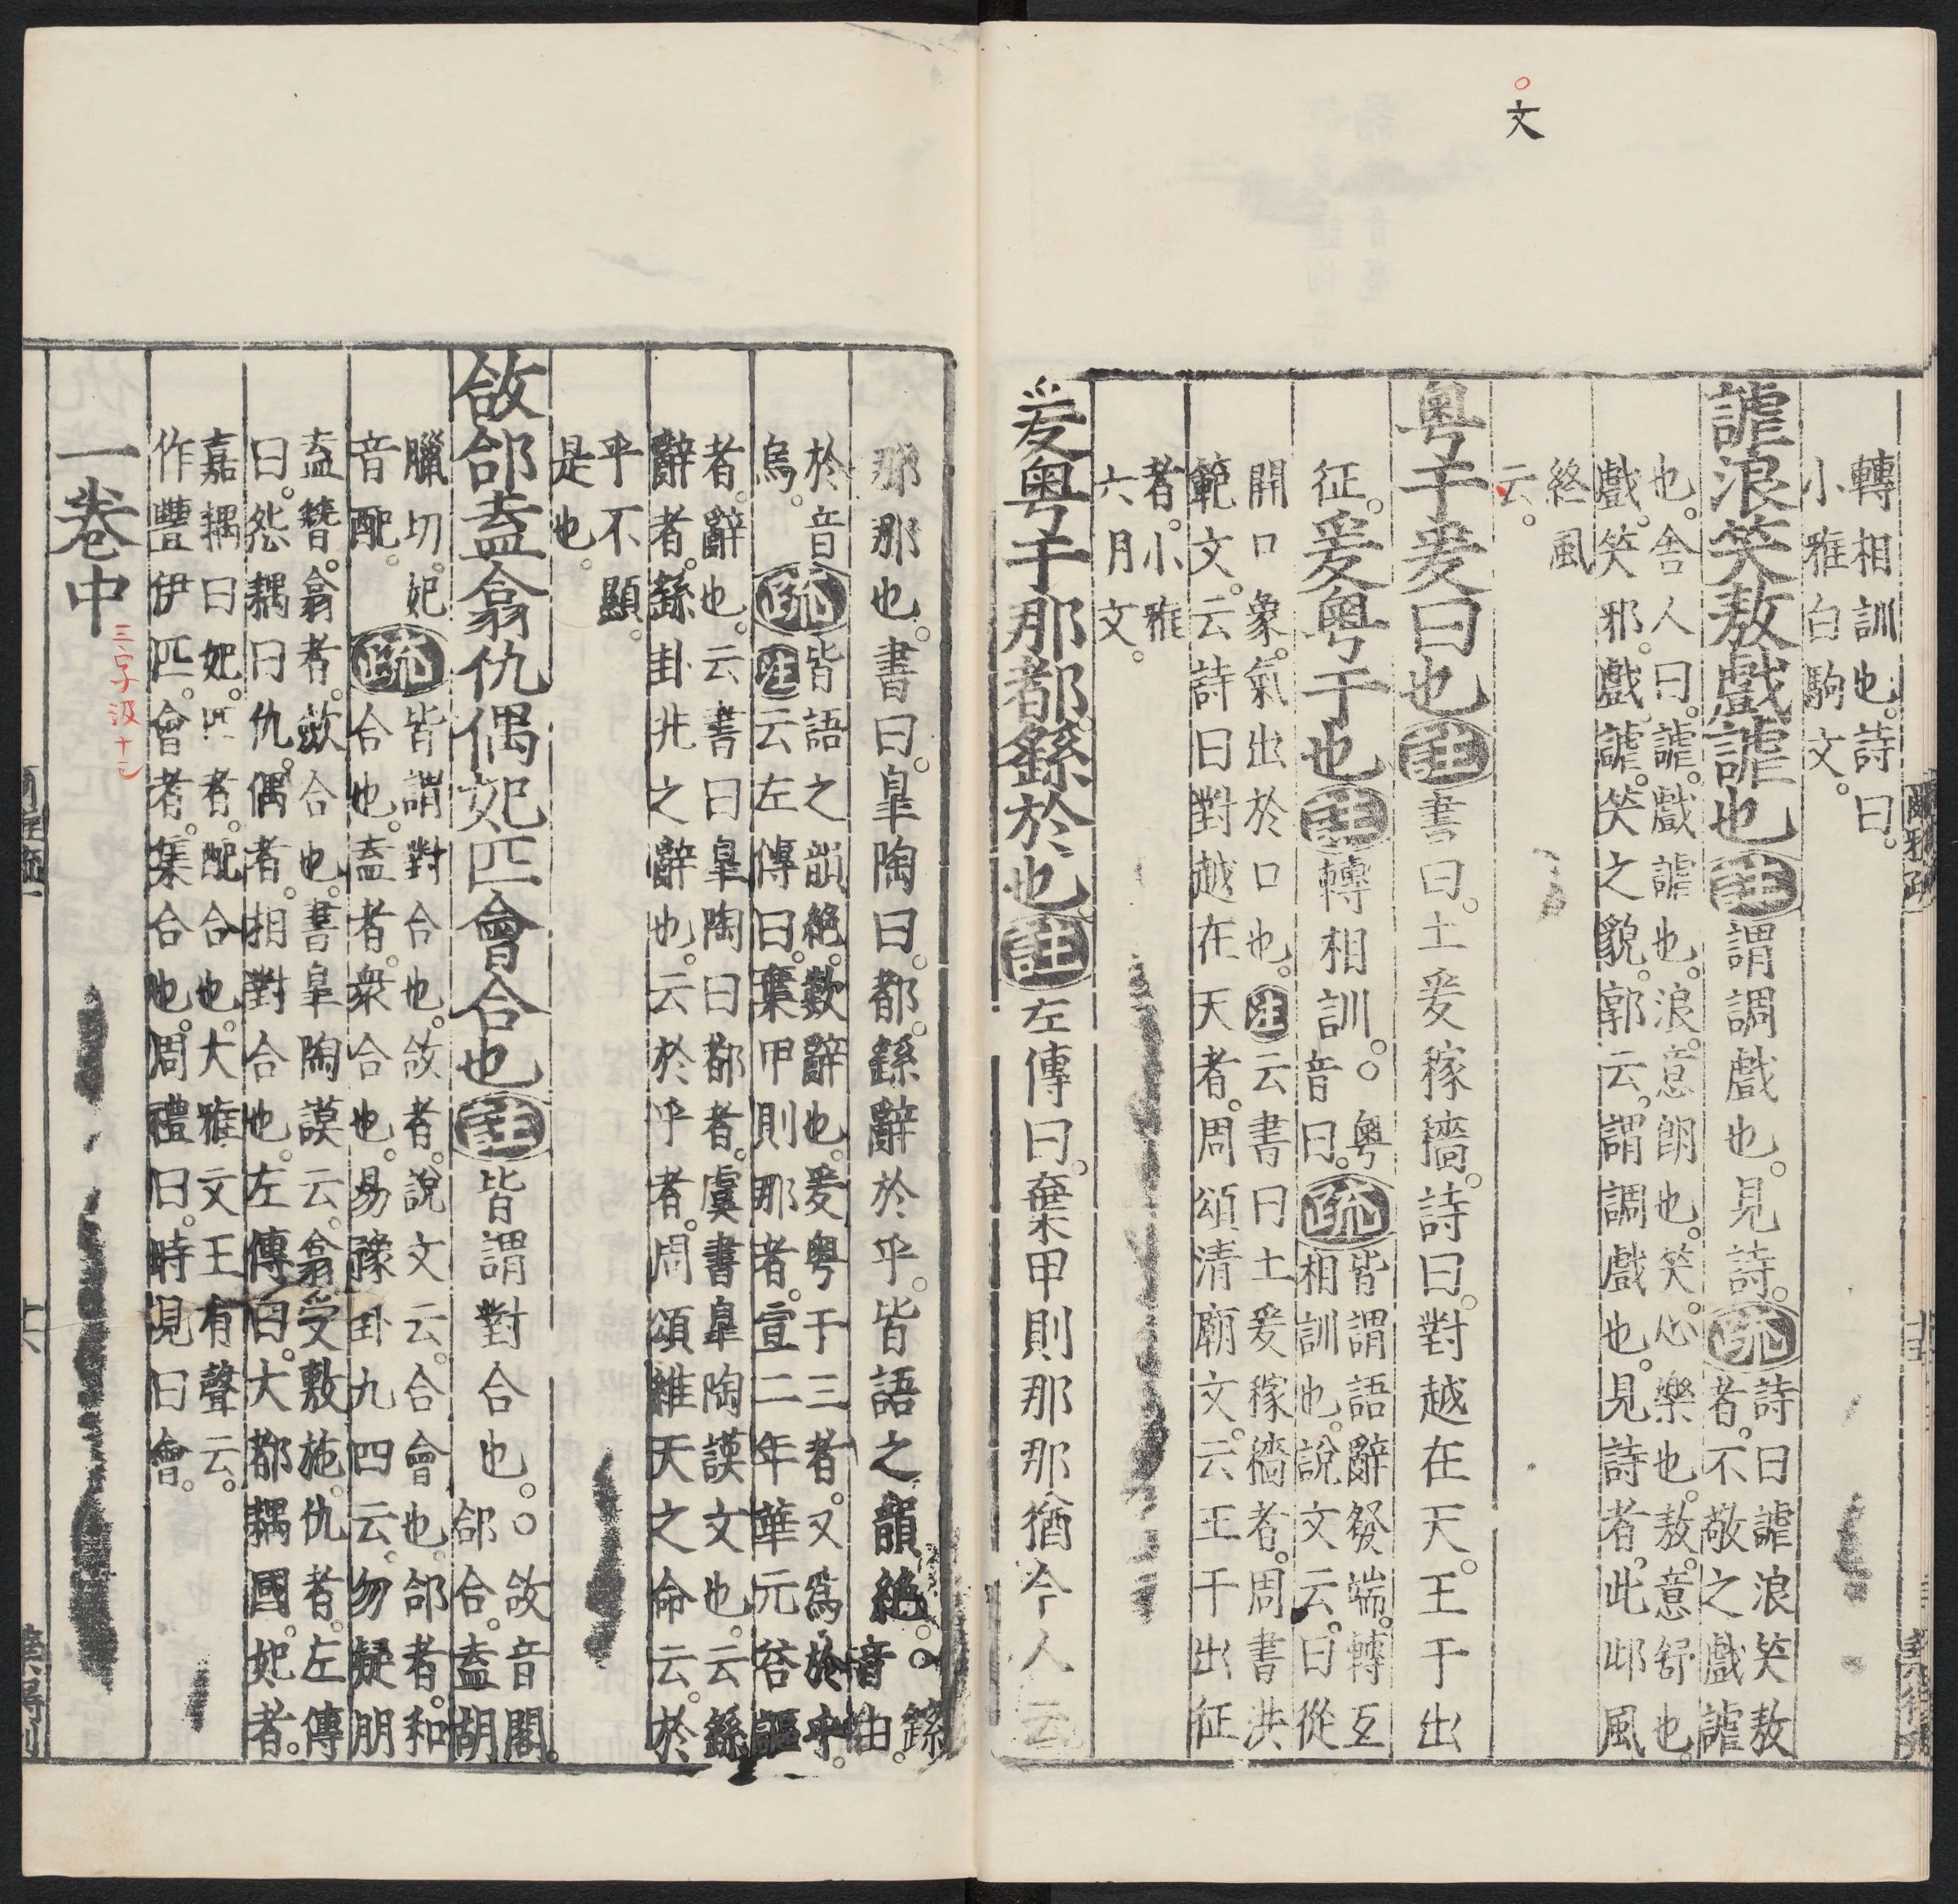 文
轉相訓也。詩曰。
小雅白駒文。
謔浪笑敖戲謔也註謂調戲也。見詩。疏詩曰謔浪笑敖
者。不敬之戲謔
也。舍人曰。謔。戲謔也。浪。意朗也。笑。心樂也。敖。意舒也。
戲。笑邪。戲謔。笑之貌。郭云。謂調戲也。見詩者。此邶風
終風
云。
粵于爰曰也註書曰。土爰稼穡。詩曰。對越在天。王于出
征。爰粵于也註轉相訓。○粵音曰。疏皆謂語辭發端。轉互
相訓也。說文云。曰從
開口象。氣出於口也。注云書曰土爰稼穡者。周書洪
範文。云詩曰對越在天者。周頌清廟文。云王于出征
者。小雅
六月文。
爰粵于那都繇於也註左傳曰。棄甲則那那猶今人云
那那也。書曰。皐陶曰。都。繇辭於乎。皆語之韻絕。○繇音由。
於音
烏。疏皆語之韻絕。歎辭也。爰粵于三者。又為於乎。
注云左傳曰。棄甲則那者。宣二年華元答謳
者。辭也。云書曰皐陶曰都者。虞書皐陶謨文也。云繇
辭者。繇卦兆之辭也。云於乎者。周頌維天之命云。於
乎不顯。
是也。
敆郃盍翕仇偶妃匹會合也註皆謂對合也。○敆音閤。郃合。盍胡
臘切。妃
音配。疏皆謂對合也。敆者。說文云。合會也。郃者。和
合也。盍者。衆合也。易豫卦九四云。勿疑朋
盍簪。翕者。歛合也。書皐陶謨云。翕受敷施。仇者。左傳
曰。怨耦曰仇。偶者。相對合也。左傳曰。大都耦國。妃者。
嘉耦曰妃。匹者。配合也。大雅文王有聲云。
作豐伊匹。會者。集合也。周禮曰。時見曰會。
一卷中
三字汲十七
十六